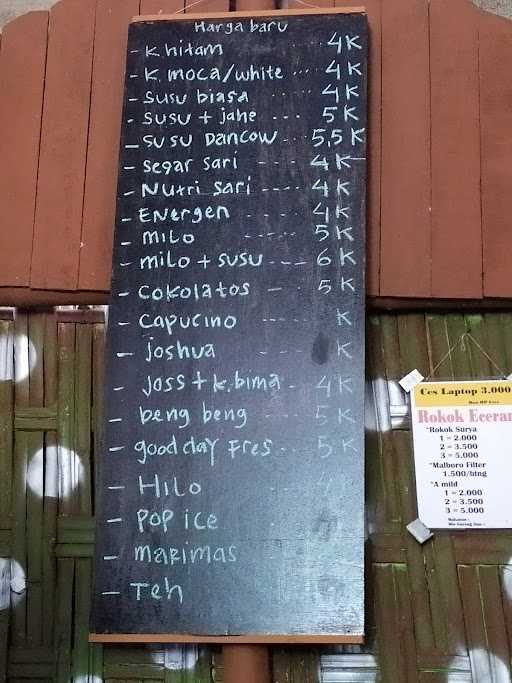 Harga baru
- K hitam .... 4K
- K. moca/white ... 4K
- Susu biasa ..... 4K
- Susu + jahe ... 5K
- Susu Dancow .. 5,5K
- Segar sari ---- 4K
- Nutri sari ---- 4K
- Energen ---- 4K
- Milo ----- 5K
- Milo + Susu --- 6K
- Cokolatos -- 5K
- Capucino ---- K
- Joshua ---- K
- Joss + K. bima - 4K
- beng beng ---- 5K
- good day Fres -- 5K
- Hilo
- Pop ice
- Marimas
- Teh
Ces Laptop 3.000
Rokok Eceran
*Rokok Surya
1 = 2.000
2 = 3.500
3 = 5.000
*Malboro Filter
1.500/btng
*A mild
1 = 2.000
2 = 3.500
3 = 5.000